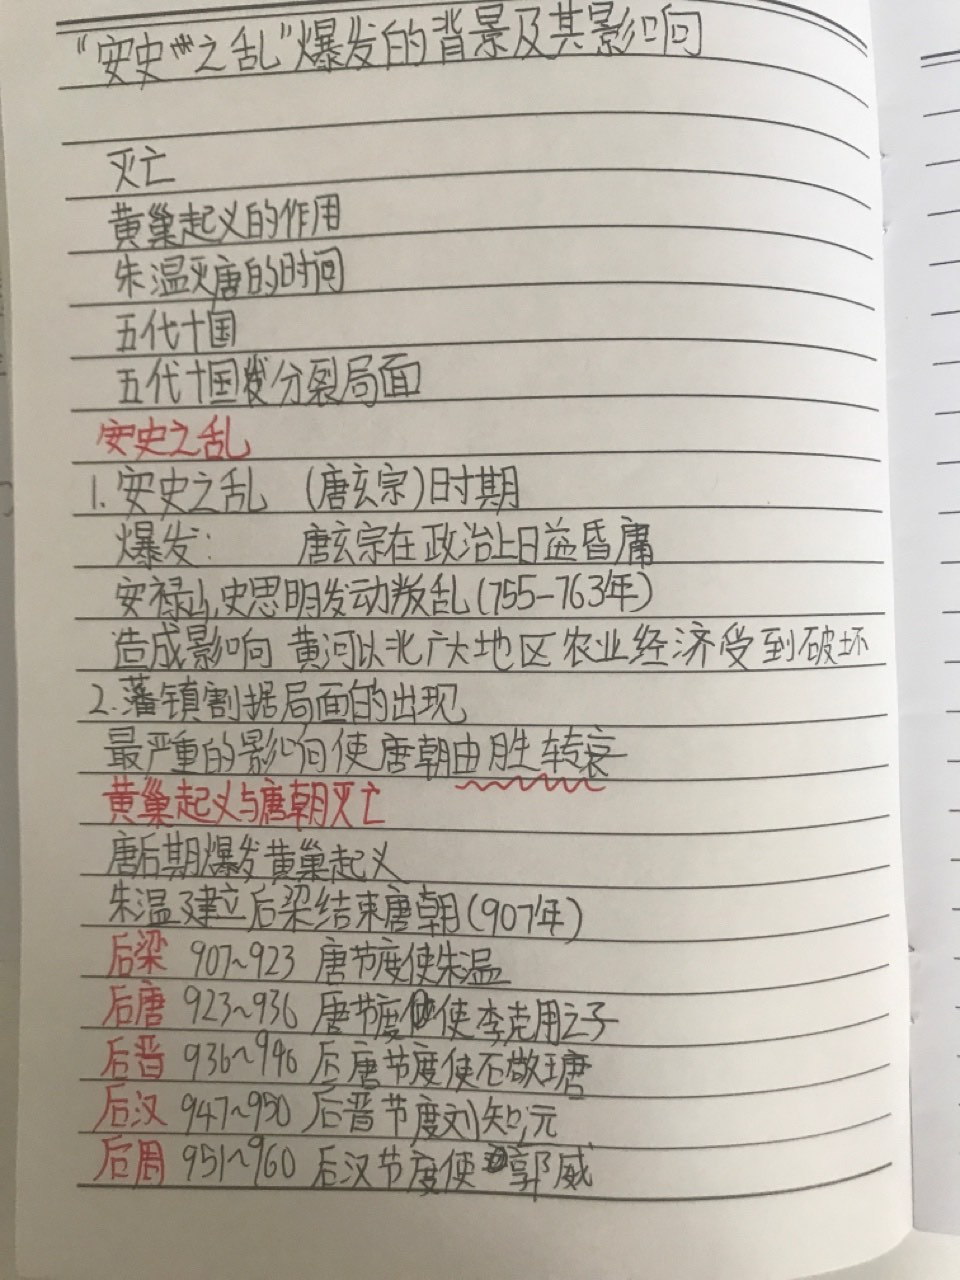 “安史之乱”爆发的背景及其影响
灭亡
黄巢起义的作用
朱温灭唐的时间
五代十国
五代十国分裂局面
安史之乱
1.安史之乱 (唐玄宗)时期
爆发: 唐玄宗在政治上日益昏庸
安禄山、史思明发动叛乱(755-763年)
造成影响 黄河以北广大地区农业经济受到破坏
2.藩镇割据局面的出现
最严重的影响使唐朝由胜转衰
黄巢起义与唐朝灭亡
唐后期爆发黄巢起义
朱温建立后梁结束唐朝(907年)
后梁 907~923 唐节度使朱温
后唐 923~936 唐节度使李克用之子
后晋 936~946 后唐节度使石敬瑭
后汉 947~950 后晋节度刘知元
后周 951~960 后汉节度使郭威